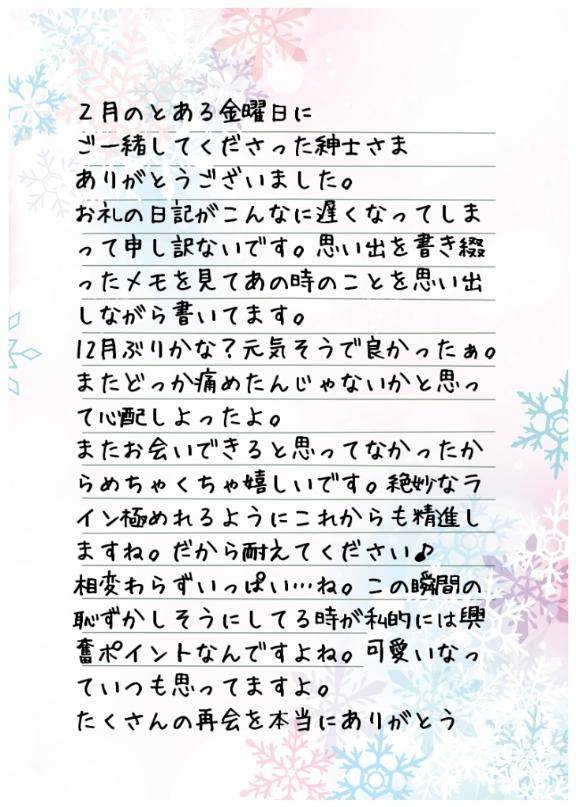 2月のとある金曜日に
ご一緒してくださった紳士さま
ありがとうございました。
お礼の日記がこんなに遅くなってしま
って申し訳ないです。思い出を書き綴
ったメモを見てあの時のことを思い出
しながら書いてます。
12月ぶりかな？元気そうで良かったぁ。
またどっか痛めたんじゃないかと思っ
て心配しよったよ。
またお会いできると思ってなかったか
らめちゃくちゃ嬉しいです。絶妙なラ
イン極めれるようにこれからも精進し
ますね。だから耐えてください♪
相変わらずいっぱい…ね。この瞬間の
恥ずかしそうにしてる時が私的には興
奮ポイントなんですよね。可愛いなっ
ていつも思ってますよ。
たくさんの再会を本当にありがとう